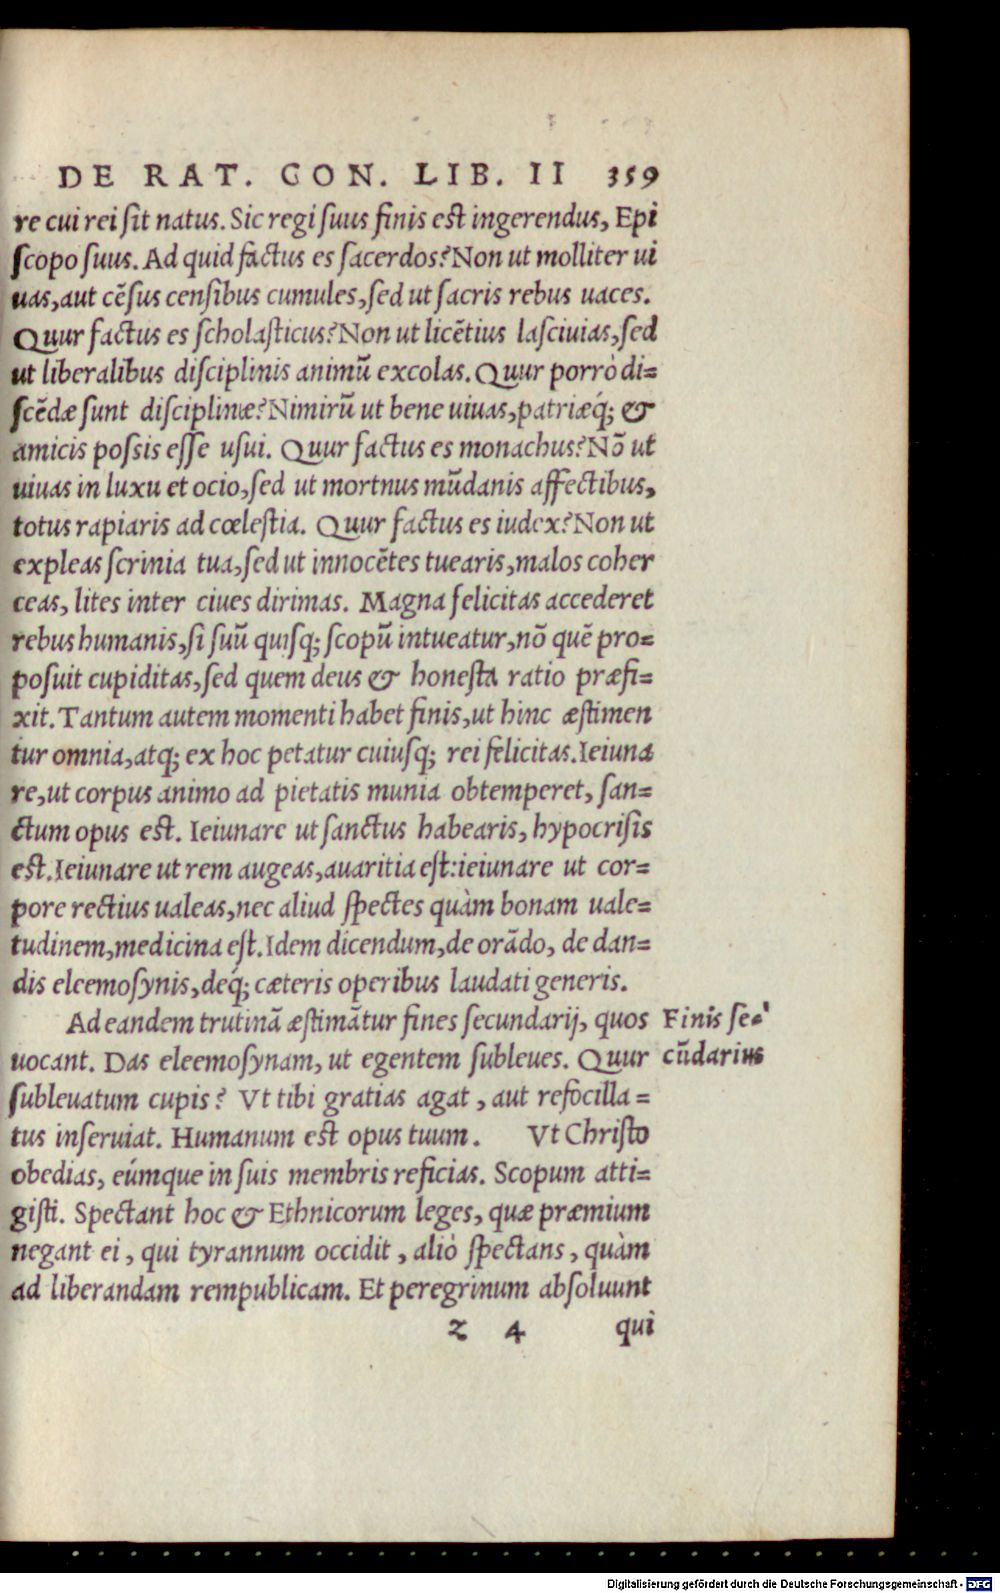 DE RAT. CON. LIB. II 359
re cui rei ſit natus. Sic regi ſuus finis est ingerendus, Epi
ſcopo ſuus. Ad quid factus es ſacerdos? Non ut molliter ui
uas, aut cēſus cenſibus cumules, ſed ut ſacris rebus uaces.
Quur factus es ſcholaſticus? Non ut licētius laſciuias, ſed
ut liberalibus diſciplinis animū excolas. Quur porrò di=
ſcēdæ ſunt diſciplinæ? Nimirū ut bene uiuas, patriæq́; &
amicis poſsis eſſe uſui. Quur factus es monachus? Nō ut
uiuas in luxu et ocio, ſed ut mortnus mūdanis affectibus,
totus rapiaris ad cœleſtia. Quur factus es iudex? Non ut
expleas ſcrinia tua, ſed ut innocētes tuearis, malos coher
ceas, lites inter ciues dirimas. Magna felicitas accederet
rebus humanis, ſi ſuū quiſq; ſcopū intueatur, nō quē pro=
poſuit cupiditas, ſed quem deus & honeſta ratio præfi=
xit. Tantum autem momenti habet finis, ut hinc æſtimen
tur omnia, atq; ex hoc petatur cuiuſq; rei felicitas. Ieiuna
re, ut corpus animo ad pietatis munia obtemperet, ſan=
ctum opus est. Ieiunare ut ſanctus habearis, hypocriſis
est. Ieiunare ut rem augeas, auaritia eſt: ieiunare ut cor=
pore rectius ualeas, nec aliud ſpectes quàm bonam uale=
tudinem, medicina eſt. Idem dicendum, de orādo, de dan=
dis eleemoſynis, deq́; cæteris operibus laudati generis.
Ad eandem trutinā æſtimātur fines ſecundarij, quos
Finis ſe=
uocant. Das eleemoſynam, ut egentem ſubleues. Quur
cūdarius
ſubleuatum cupis? Vt tibi gratias agat, aut refocilla=
tus inſeruiat. Humanum est opus tuum. Vt Chriſto
obedias, eúmque in ſuis membris reficias. Scopum atti=
giſti. Spectant hoc & Ethnicorum leges, quæ præmium
negant ei, qui tyrannum occidit, aliò ſpectans, quàm
ad liberandam rempublicam. Et peregrinum abſoluunt
z 4 qui
Digitalisierung gefördert durch die Deutsche Forschungsgemeinschaft - DFG